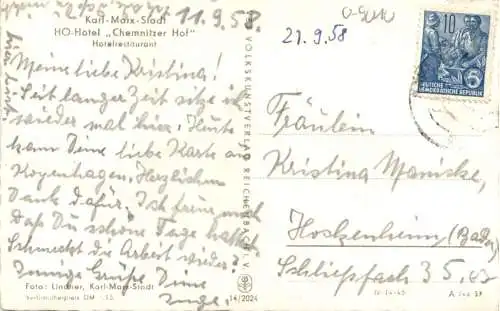 Karl-Marx-Stadt 11.9.58.
HO-Hotel „Chemnitzer Hof"
Hotelrestaurant
Meine liebe Kristina!
Seit langer Zeit sitze ich
wieder mal hier. Heute
kam Deine liebe Karte an
Kopenhagen. Herzlichen
Dank dafür. Ich freue mich
daß Du schöne Tage hattest.
Schmeckt die Arbeit wieder?
Innige Grüße Deine
Inge.
Foto: Lindner, Karl-Marx-Stadt
Verbraucherpreis DM
VOLKSKUNSTVERLAG REICHENBACH I. V.
14/2024
21.9.58
10
DEUTSCHE
DEMOKRATISCHE REPUBLIK
Fräulein
Kristina
Hockenheim (Baden)
Schließfach 35